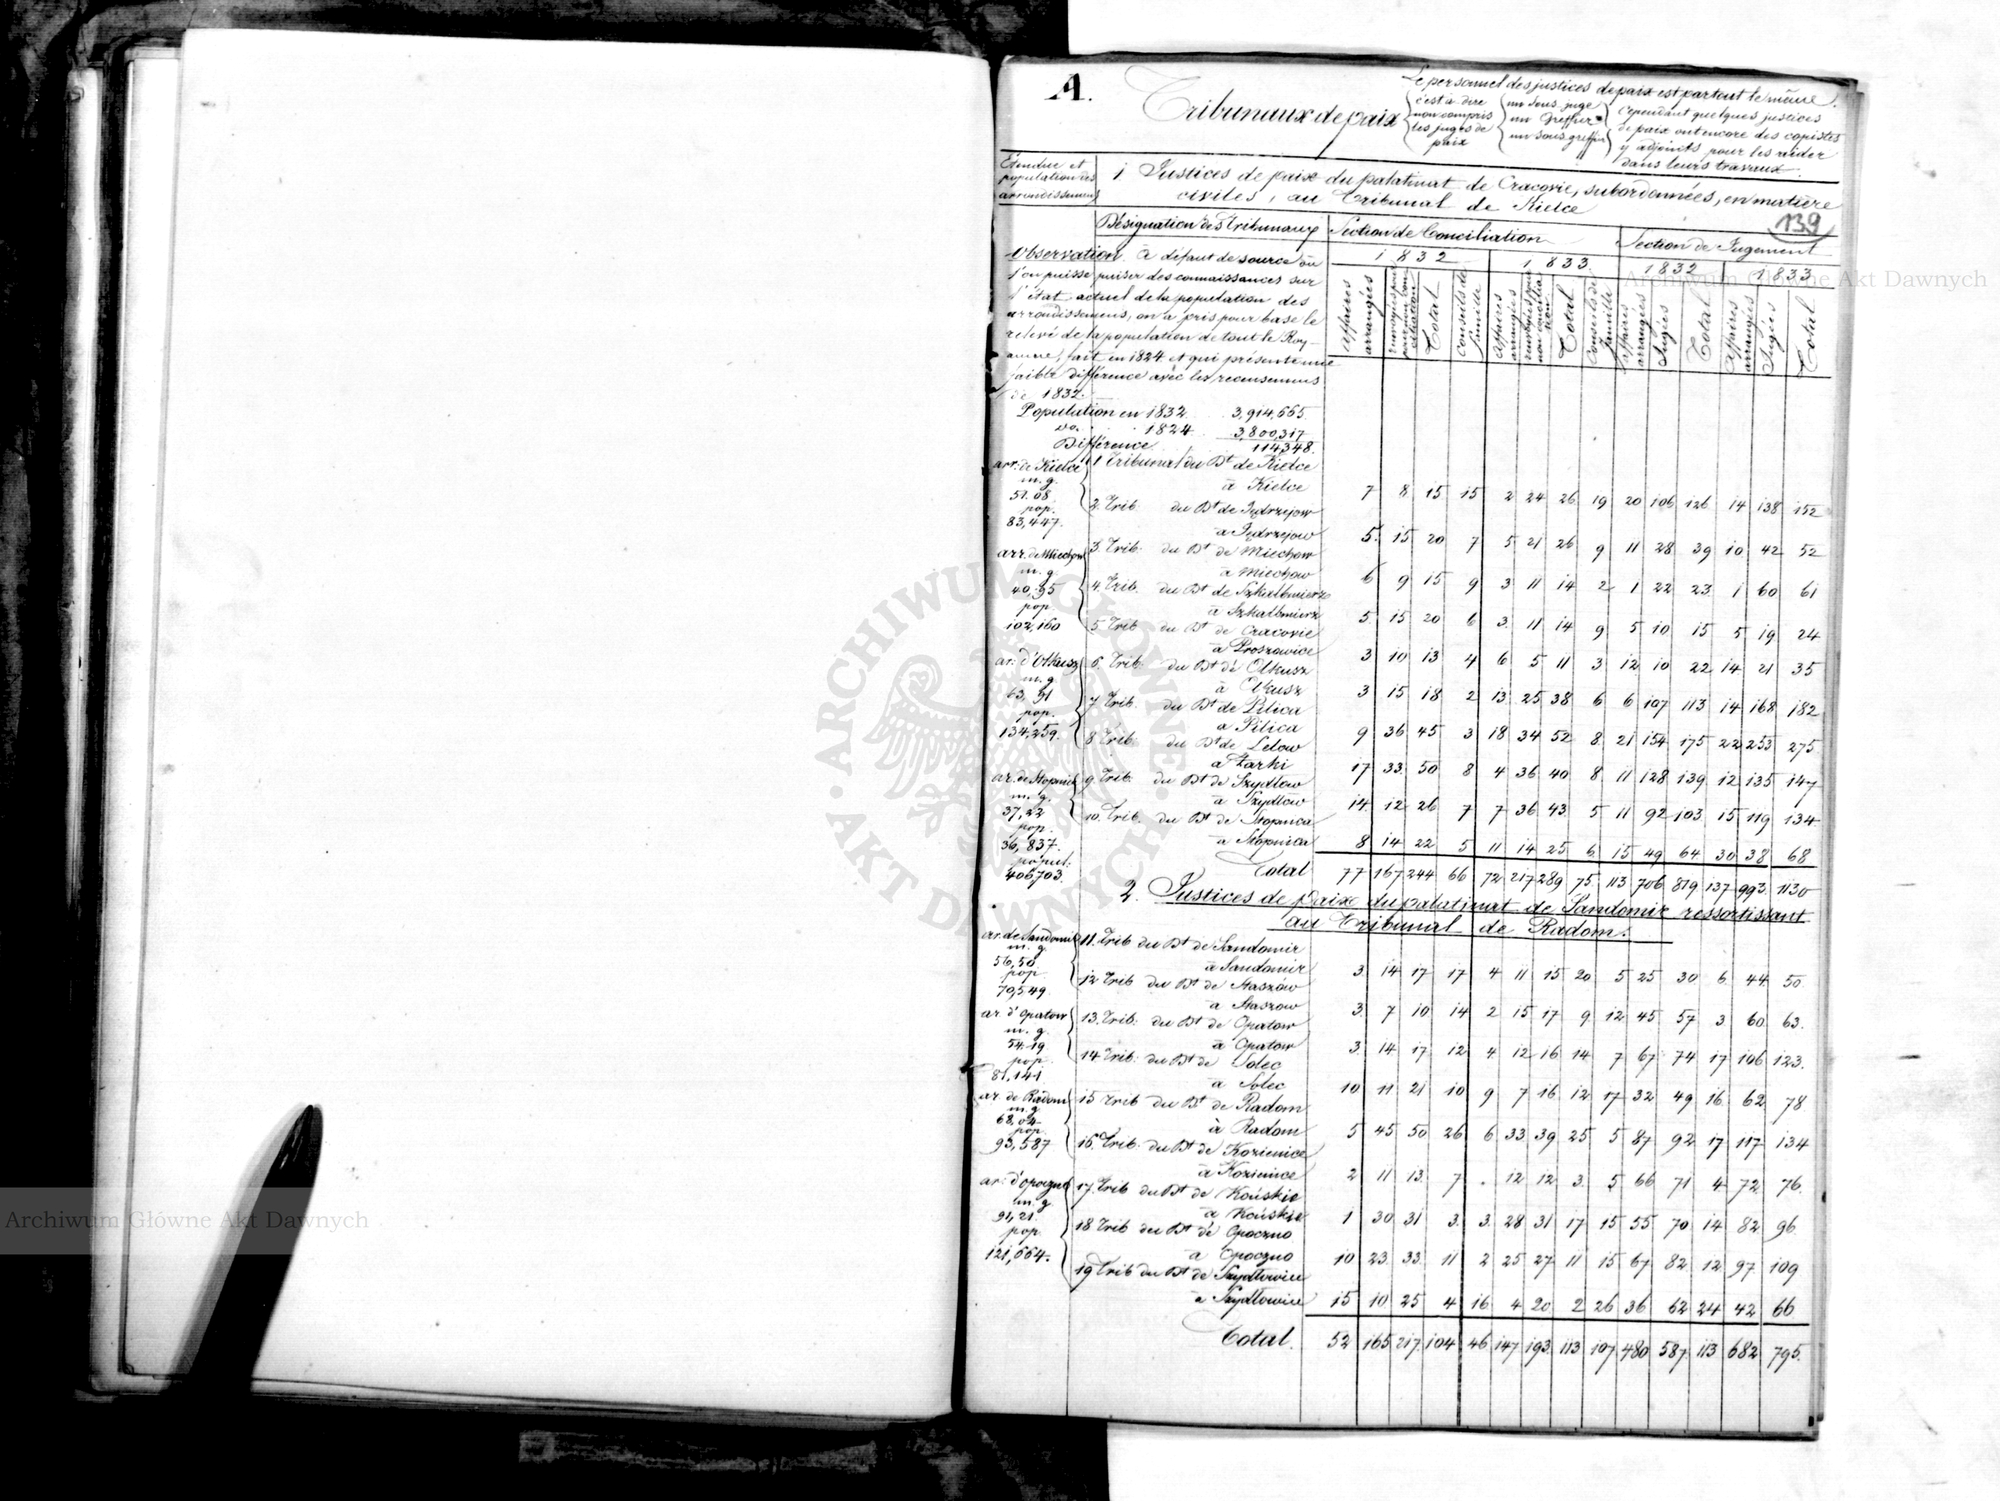 A.
Tribunaux de paix
Le personnel des justices de paix est partout le même.
c'est à dire
non compris
les juges de
paix
un sous juge
un Greffier
un sous greffier
Cependant quelques justices
de paix ont encore des copistes
y adjoints pour les aider
dans leurs travaux.
Etendue et
population des
arrondissements
1 Justices de paix du palatinat de Cracovie, subordonnées, en matière
civiles, au Tribunal de Kielce
139
Désignation des Tribunaux
Section de Conciliation
Section de Jugement
1832 1833 1832 1833
Affaires arrangées
renvoyés pour non conciliation
Total
Conseils de famille
Affaires arrangées
Total
Conseils de famille
affaires arrangées
Jugées
Total
Affaires arrangées
Jugées
Total
Observation. à défaut de source où
l'on puisse puiser des connaissances sur
l'état actuel de la population des
arrondissemens, on a pris pour base le
relevé de la population de tout le Roy-
aume, fait en 1824 et qui présente une
faible différence avec les recensemens
de 1832.
Population en 1832. 3,914,665
do. 1824. 3,800,317
Différence 114,348.
arr. de Kielce
m. g.
51.08
pop.
83,447.
1 Tribunal du Dt de Kielce
à Kielce 7 8 15 15 2 24 26 19 20 106 126 14 138 152
2. Trib. du Dt de Jędrzejow
à Jędrzejow 5. 15 20 7 5 21 26 9 11 28 39 10 42 52
arr. de Miechow
m. g
40,95
pop.
102,160
3. Trib. du Dt de Miechow
à Miechow 6 9 15 9 3 11 14 2 1 22 23 1 60 61
4. Trib. du Dt de Szkalbmierz
à Szkalbmierz 5 15 20 6 3 11 14 9 5 10 15 5 19 24
5. Trib du Dt de Cracovie
à Proszowice 3 10 13 4 6 5 11 3 12 10 22 14 21 35
ar. d'Olkusz
m. g
63,91
pop.
134,259.
6. Trib. du Dt de Olkusz
à Olkusz 3 15 18 2 13 25 38 6 6 107 113 14 168 182
7 Trib. du Dt de Pilica
a Pilica 9 36 45 3 18 34 52 8 21 154 175 22 253 275
8 Trib. du Dt de Lelow
à Żarki 17 33 50 8 4 36 40 8 11 128 139 12 135 147
ar. de Stopnica
m. g.
37,22
pop.
36,837.
popul.
406,703.
9. Trib. du Dt de Szydłow
à Szydłow 14 12 26 7 7 36 43 5 11 92 103 15 119 134
10. Trib. du Dt de Stopnica
à Stopnica 8 14 22 5 11 14 25 6 15 49 64 30 38 68
Total 77 167 244 66 72 217 289 75 113 706 819 137 993 1130
2. Justices de paix du palatinat de Sandomir ressortissant
au Tribunal de Radom.
ar. de Sandomir
m. g.
56,50
pop
70,549.
11. Trib du Dt de Sandomir
à Sandomir 3 14 17 17 4 11 15 20 5 25 30 6 44 50
12 Trib du Dt de Staszów
à Staszow 3 7 10 14 2 15 17 9 12 45 57 3 60 63.
ar d'Opatow
m. g.
54.19
pop.
81,141
13. Trib. du Dt de Opatow
à Opatow 3 14 17 12 4 12 16 14 7 67 74 17 106 123.
14 Trib. du Dt de Solec
à Solec 10 11 21 10 9 7 16 12 17 32 49 16 62 78
ar. de Radom
m. g
68,04
pop.
93,587
15 Trib du Dt de Radom
à Radom 5 45 50 26 6 33 39 25 5 87 92 17 117 134
16. Trib. du Dt de Kozienice
à Kozienice 2 11 13 7 . 12 12 3 5 66 71 4 72 76.
ar. d'Opoczno
m. g
91,21.
pop
121,664.
17. Trib du Dt de Końskie
à Końskie 1 30 31 3 3 28 31 17 15 55 70 14 82 96.
18 Trib du Dt de Opoczno
à Opoczno 10 23 33 11 2 25 27 11 15 67 82 12 97 109
19 Trib du Dt de Szydłowice
à Szydłowice 15 10 25 4 16 4 20 2 26 36 62 24 42 66
Total. 52 165 217 104 46 147 193 113 107 480 587 113 682 795.
ARCHIWUM GŁÓWNE AKT DAWNYCH
Archiwum Główne Akt Dawnych
Archiwum Główne Akt Dawnych